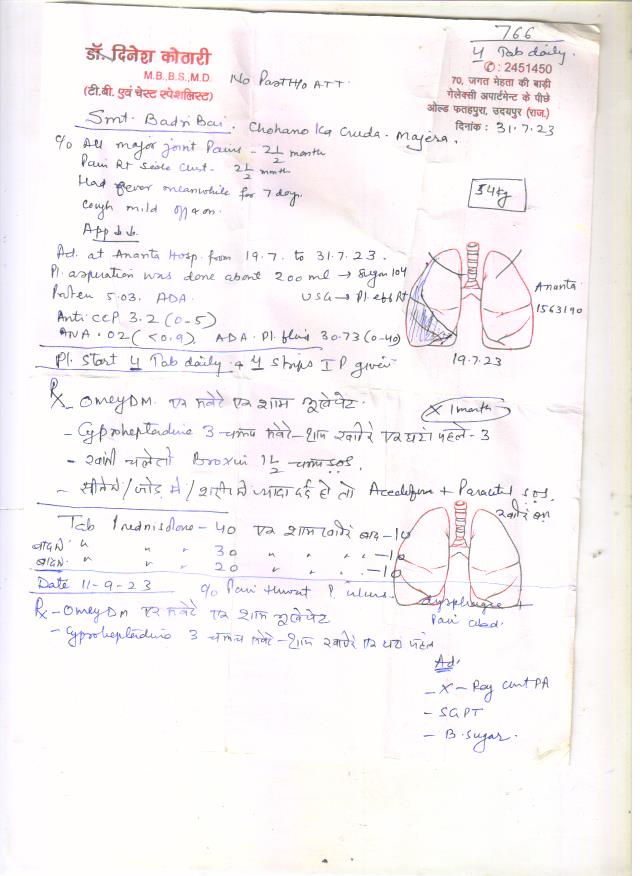 766
4 Tab daily.
डॉ. दिनेश कोठारी
M.B.,B.S.,M.D.
(टी.बी. एवं चेस्ट स्पेशलिस्ट)
No Past H/o ATT.
✆ : 2451450
70, जगत मेहता की बाड़ी
गेलेक्सी अपार्टमेन्ट के पीछे
ओल्ड फतहपुरा, उदयपुर (राज.)
दिनांक : 31.7.23
Smt. Badri Bai. Chohano Ka Guda. Majera.
C/o All major joint Pains - 2 1/2 month
Pain Rt side Chest - 2 1/2 month
Had fever meanwhile for 7 days.
Cough mild off & on.
App ↓↓.
54 kg
Ad. at Ananta Hosp. from 19.7. to 31.7.23.
Pl. aspiration was done about 200 ml → Sugar 104
Protein 5.03. ADA. USG → Pl. eff Rt
Anti CCP 3.2 (0-5)
ANA . 02 (<0.9) ADA. Pl. fluid 30.73 (0-40)
Ananta
1563190
19.7.23
Pl. Start 4 Tab daily & 4 strips I P given
Rx - Omey DM. एक सवेरे एक शाम भूखे पेट.
X 1 month
- Cyproheptadine 3 चम्मच सवेरे-शाम खाने के एक घंटा पहले - 3
- खांसी चले तो Broxin 1 1/2 चम्मच sos.
- सीने में/जोड़ में/शरीर में ज्यादा दर्द हो तो Aceclofenac + Paracetamol sos.
खाने के बाद
Tab Prednisolone - 40 एक शाम खाने के बाद - 10
बाद में " " " 30 " " " - 10
बाद में " " " 20 " " " - 10
Date 11-9-23 C/o Pain throat ulcers. dysphagia +
Pain abd.
Rx - Omey DM एक सवेरे एक शाम भूखे पेट
- Cyproheptadine 3 चम्मच सवेरे-शाम खाने के एक घंटा पहले
Ad.
- X-Ray Chest PA
- SGPT
- B. Sugar.